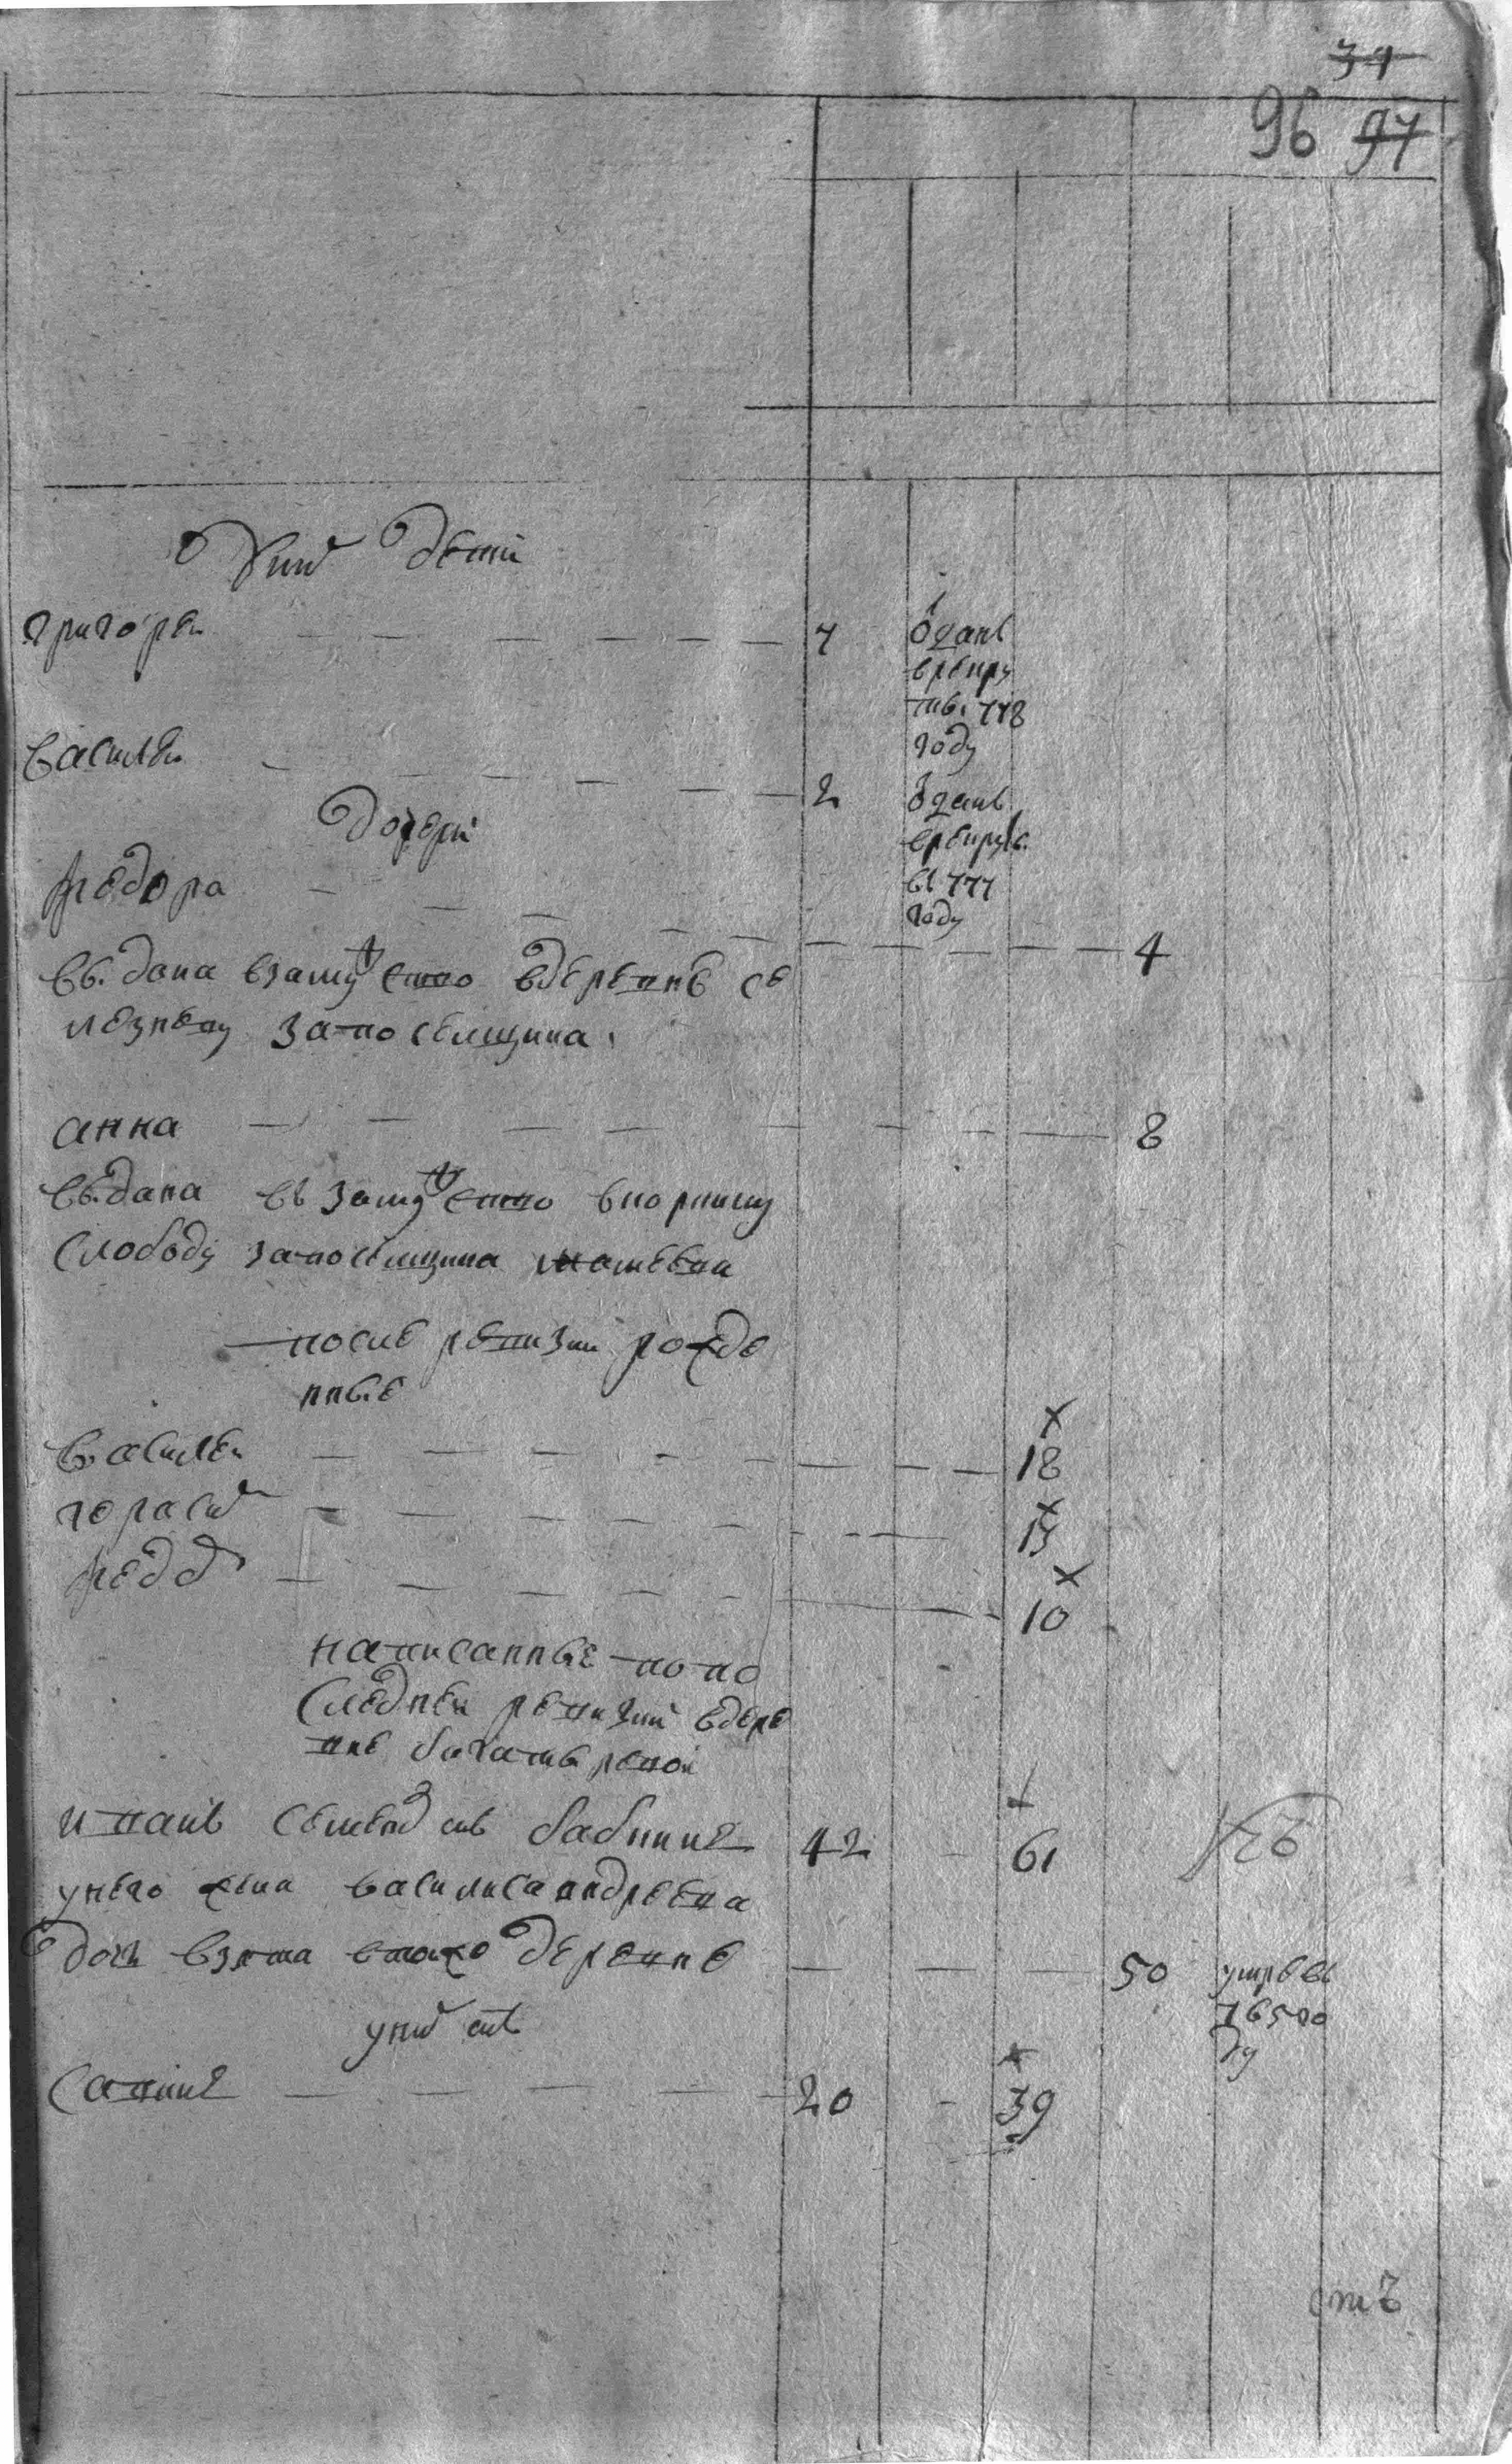 31
96 97
У них дети
григореи 7 отданъ
в рекру
ты в 778
году
василеи 2 отданъ
в рекруты
въ 777
году
дочери
федора 4
выдана взамужество вдеревню се
лезневу запоселщика
анна 8
выдана въ замужество
слободу запоселщика
после ревизии рожде
нные
василеи 18
герасим 13
федор 10
написанные по по
следнеи ревизии вдере
вне богатыревои
иванъ бабкинъ 42 61
унего жена василиса андреева
дочь взята втоиже деревне 50 умре въ
765 го
ду
уних сынъ
савинъ 20 39